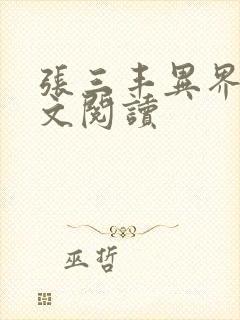 張三丰異界
文閱讀
巫哲